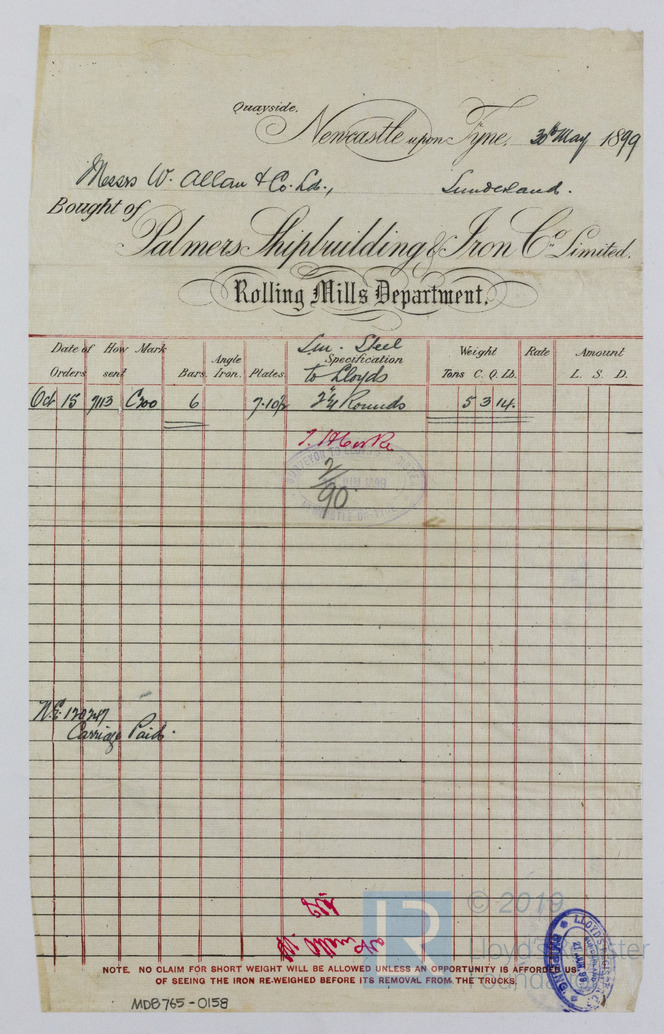 Quayside.
Newcastle upon Tyne, 30th May 1899
Messrs W. Allan & Co. Ld., Sunderland.
Bought of
Palmers Shipbuilding & Iron Co. Limited.
Rolling Mills Department.
Date of Orders How sent Mark Bars. Angle Iron. Plates. Steel Specification to Lloyds Weight Tons C. Q. Lb. Rate Amount L. S. D.
Oct 15 C300 6 2¼ Rounds 5 3 14.
SURVEYOR TO
1899
90
Carriage Paid.
© 2019
Lloyd's Register
Foundation
LR
LLOYD'S REGISTER
SHIPPING
NOTE. NO CLAIM FOR SHORT WEIGHT WILL BE ALLOWED UNLESS AN OPPORTUNITY IS AFFORDED US
OF SEEING THE IRON RE-WEIGHED BEFORE ITS REMOVAL FROM THE TRUCKS.
MDB765-0158